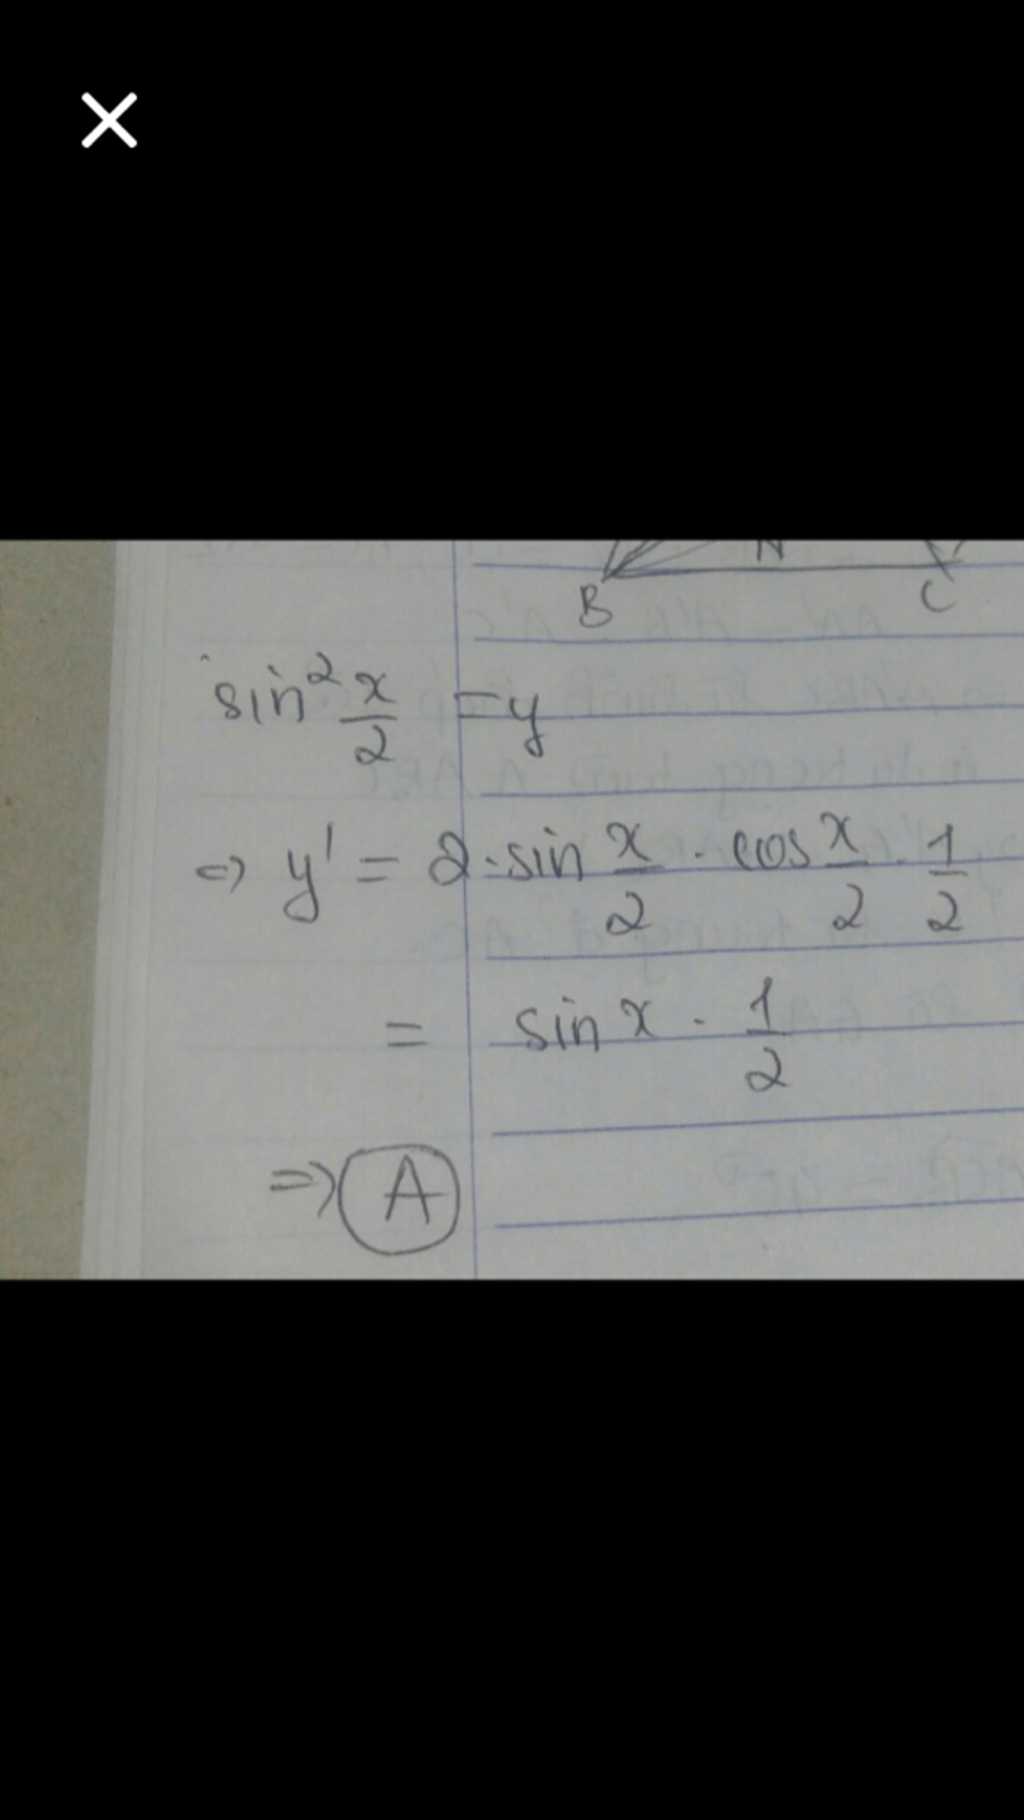 B N C
sin² x/2 = y
=> y' = 2 · sin x/2 · cos x/2 · 1/2
= sin x · 1/2
=> A